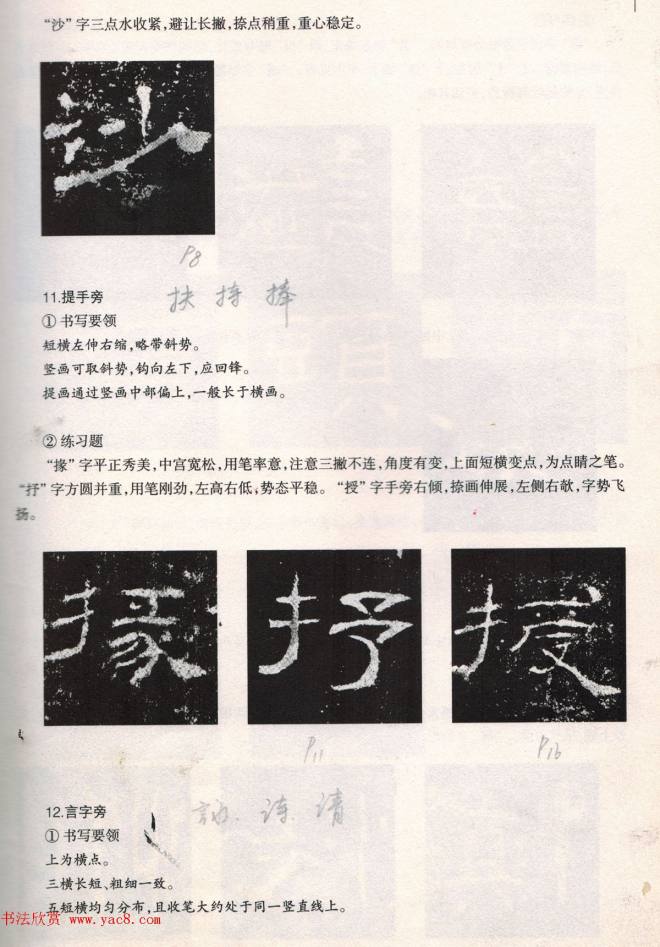 “沙”字三点水收紧,避让长撇,捺点稍重,重心稳定。
沙
P8
11.提手旁
扶 持 捧
① 书写要领
短横左伸右缩,略带斜势。
竖画可取斜势,钩向左下,应回锋。
提画通过竖画中部偏上,一般长于横画。
② 练习题
“掾”字平正秀美,中宫宽松,用笔率意,注意三撇不连,角度有变,上面短横变点,为点睛之笔。
“抒”字方圆并重,用笔刚劲,左高右低,势态平稳。“授”字手旁右倾,捺画伸展,左侧右欹,字势飞
扬。
掾 抒 授
P11 P16
12.言字旁
① 书写要领
上为横点。
三横长短、粗细一致。
五短横均匀分布,且收笔大约处于同一竖直线上。
书法欣赏 www.yac8.com